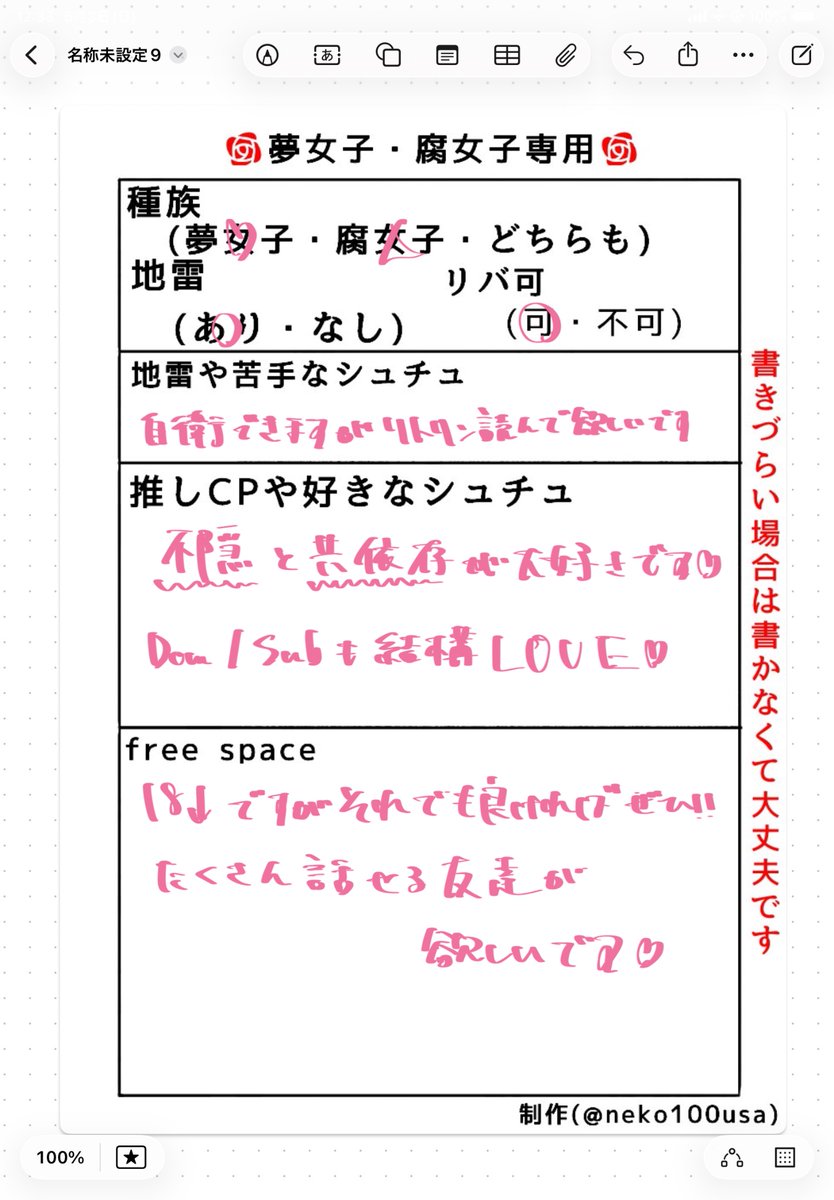 名称未設定 9
夢女子・腐女子専用
種族
(夢女子・腐女子・どちらも)
地雷
リバ可
(あり・なし)
(可・不可)
地雷や苦手なシュチュ
自衛できますがリトリン読んで欲しいです
推しCPや好きなシュチュ
不穏と共依存が大好きです♡
Dom/Subも結構LOVE♡
free space
18↓ですがそれでも良ければぜひ!!
たくさん話せる友達が
欲しいです♡
書きづらい場合は書かなくて大丈夫です
制作(@neko100usa)
100%